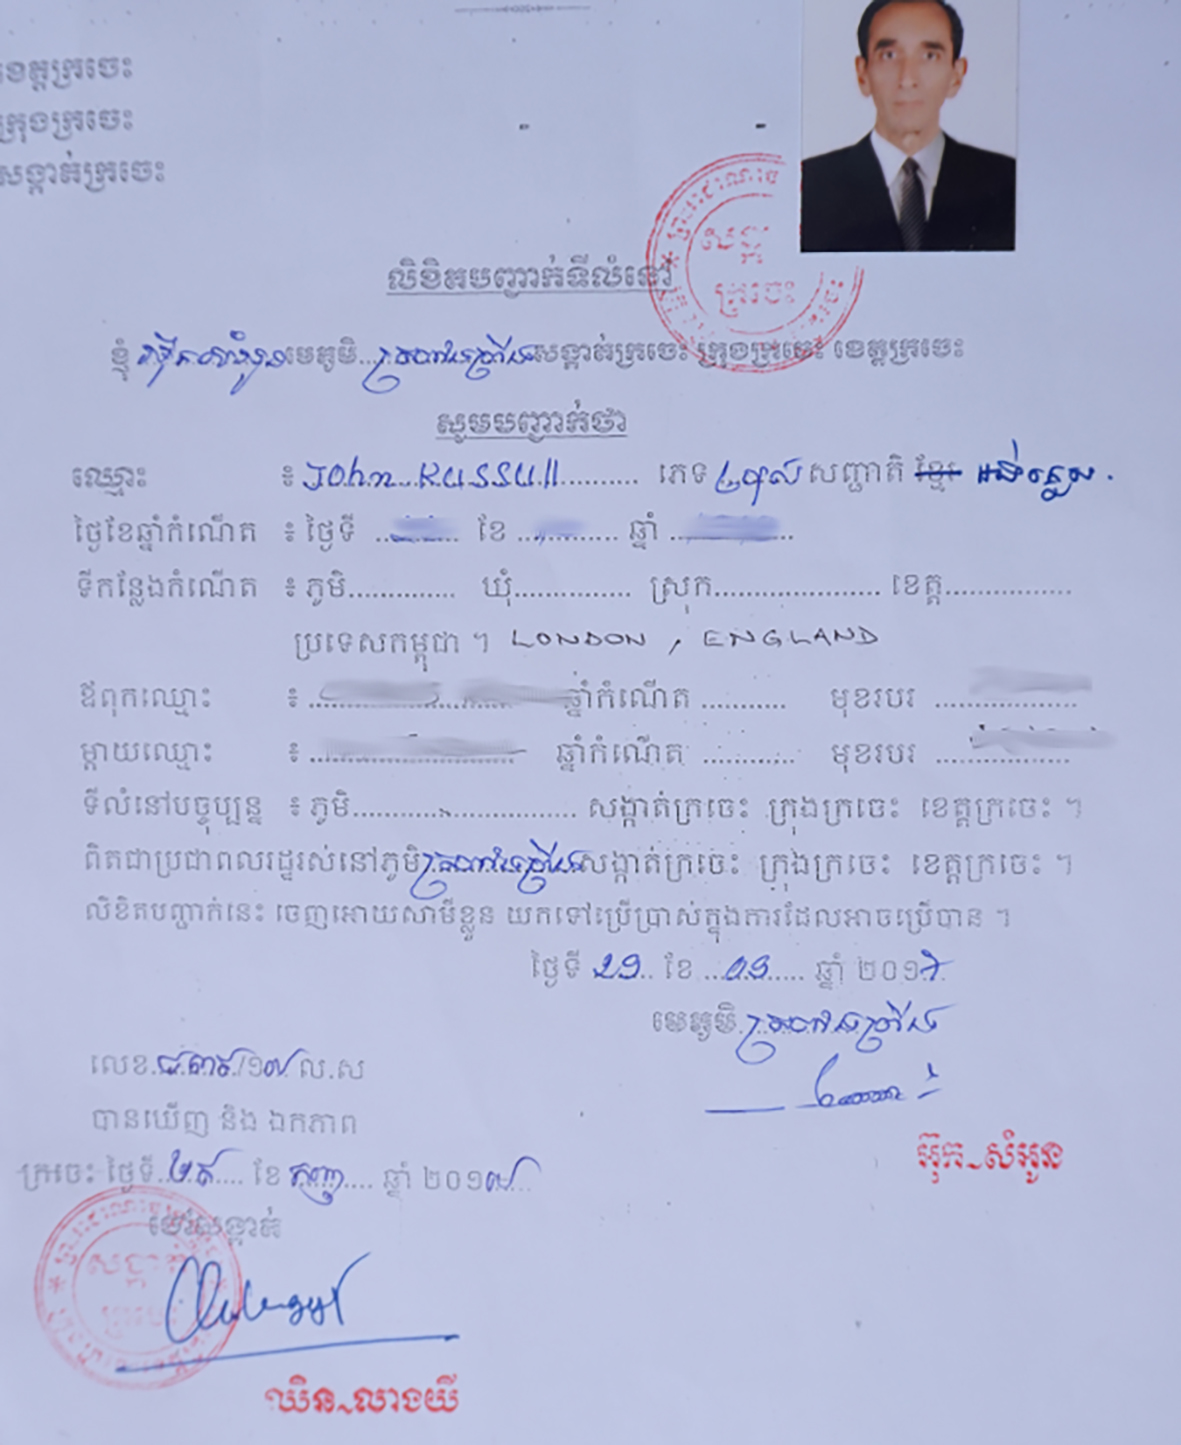 ខេត្តក្រចេះ
ក្រុងក្រចេះ
សង្កាត់ក្រចេះ
សង្កាត់
ក្រចេះ
លិខិតបញ្ជាក់ទីលំនៅ
ខ្ញុំ មេភូមិ សង្កាត់ក្រចេះ ក្រុងក្រចេះ ខេត្តក្រចេះ
សូមបញ្ជាក់ថា
ឈ្មោះ ៖ John Russull ភេទ ប្រុស សញ្ជាតិ ខ្មែរ អង់គ្លេស.
ថ្ងៃខែឆ្នាំកំណើត ៖ ថ្ងៃទី ........ ខែ ........ ឆ្នាំ ........
ទីកន្លែងកំណើត ៖ ភូមិ............. ឃុំ.............. ស្រុក..................... ខេត្ត................
ប្រទេសកម្ពុជា ។ LONDON , ENGLAND
ឪពុកឈ្មោះ ៖ ........ ឆ្នាំកំណើត ........... មុខរបរ ..................
ម្តាយឈ្មោះ ៖ ........ ឆ្នាំកំណើត ............ មុខរបរ .................
ទីលំនៅបច្ចុប្បន្ន ៖ ភូមិ............................ សង្កាត់ក្រចេះ ក្រុងក្រចេះ ខេត្តក្រចេះ ។
ពិតជាប្រជាពលរដ្ឋរស់នៅភូមិ សង្កាត់ក្រចេះ ក្រុងក្រចេះ ខេត្តក្រចេះ ។
លិខិតបញ្ជាក់នេះ ចេញអោយសាមីខ្លួន យកទៅប្រើប្រាស់ក្នុងការដែលអាចប្រើបាន ។
ថ្ងៃទី ២១.. ខែ ...០១...... ឆ្នាំ ២០១៧
មេភូមិ
លេខ /១៧ ល.ស
បានឃើញ និង ឯកភាព
ក្រចេះ ថ្ងៃទី ខែ ឆ្នាំ ២០១៧
ចៅសង្កាត់
សង្កាត់
ក្រចេះ
អ៊ុក~សំអូន
ឈិន~លាងឃី